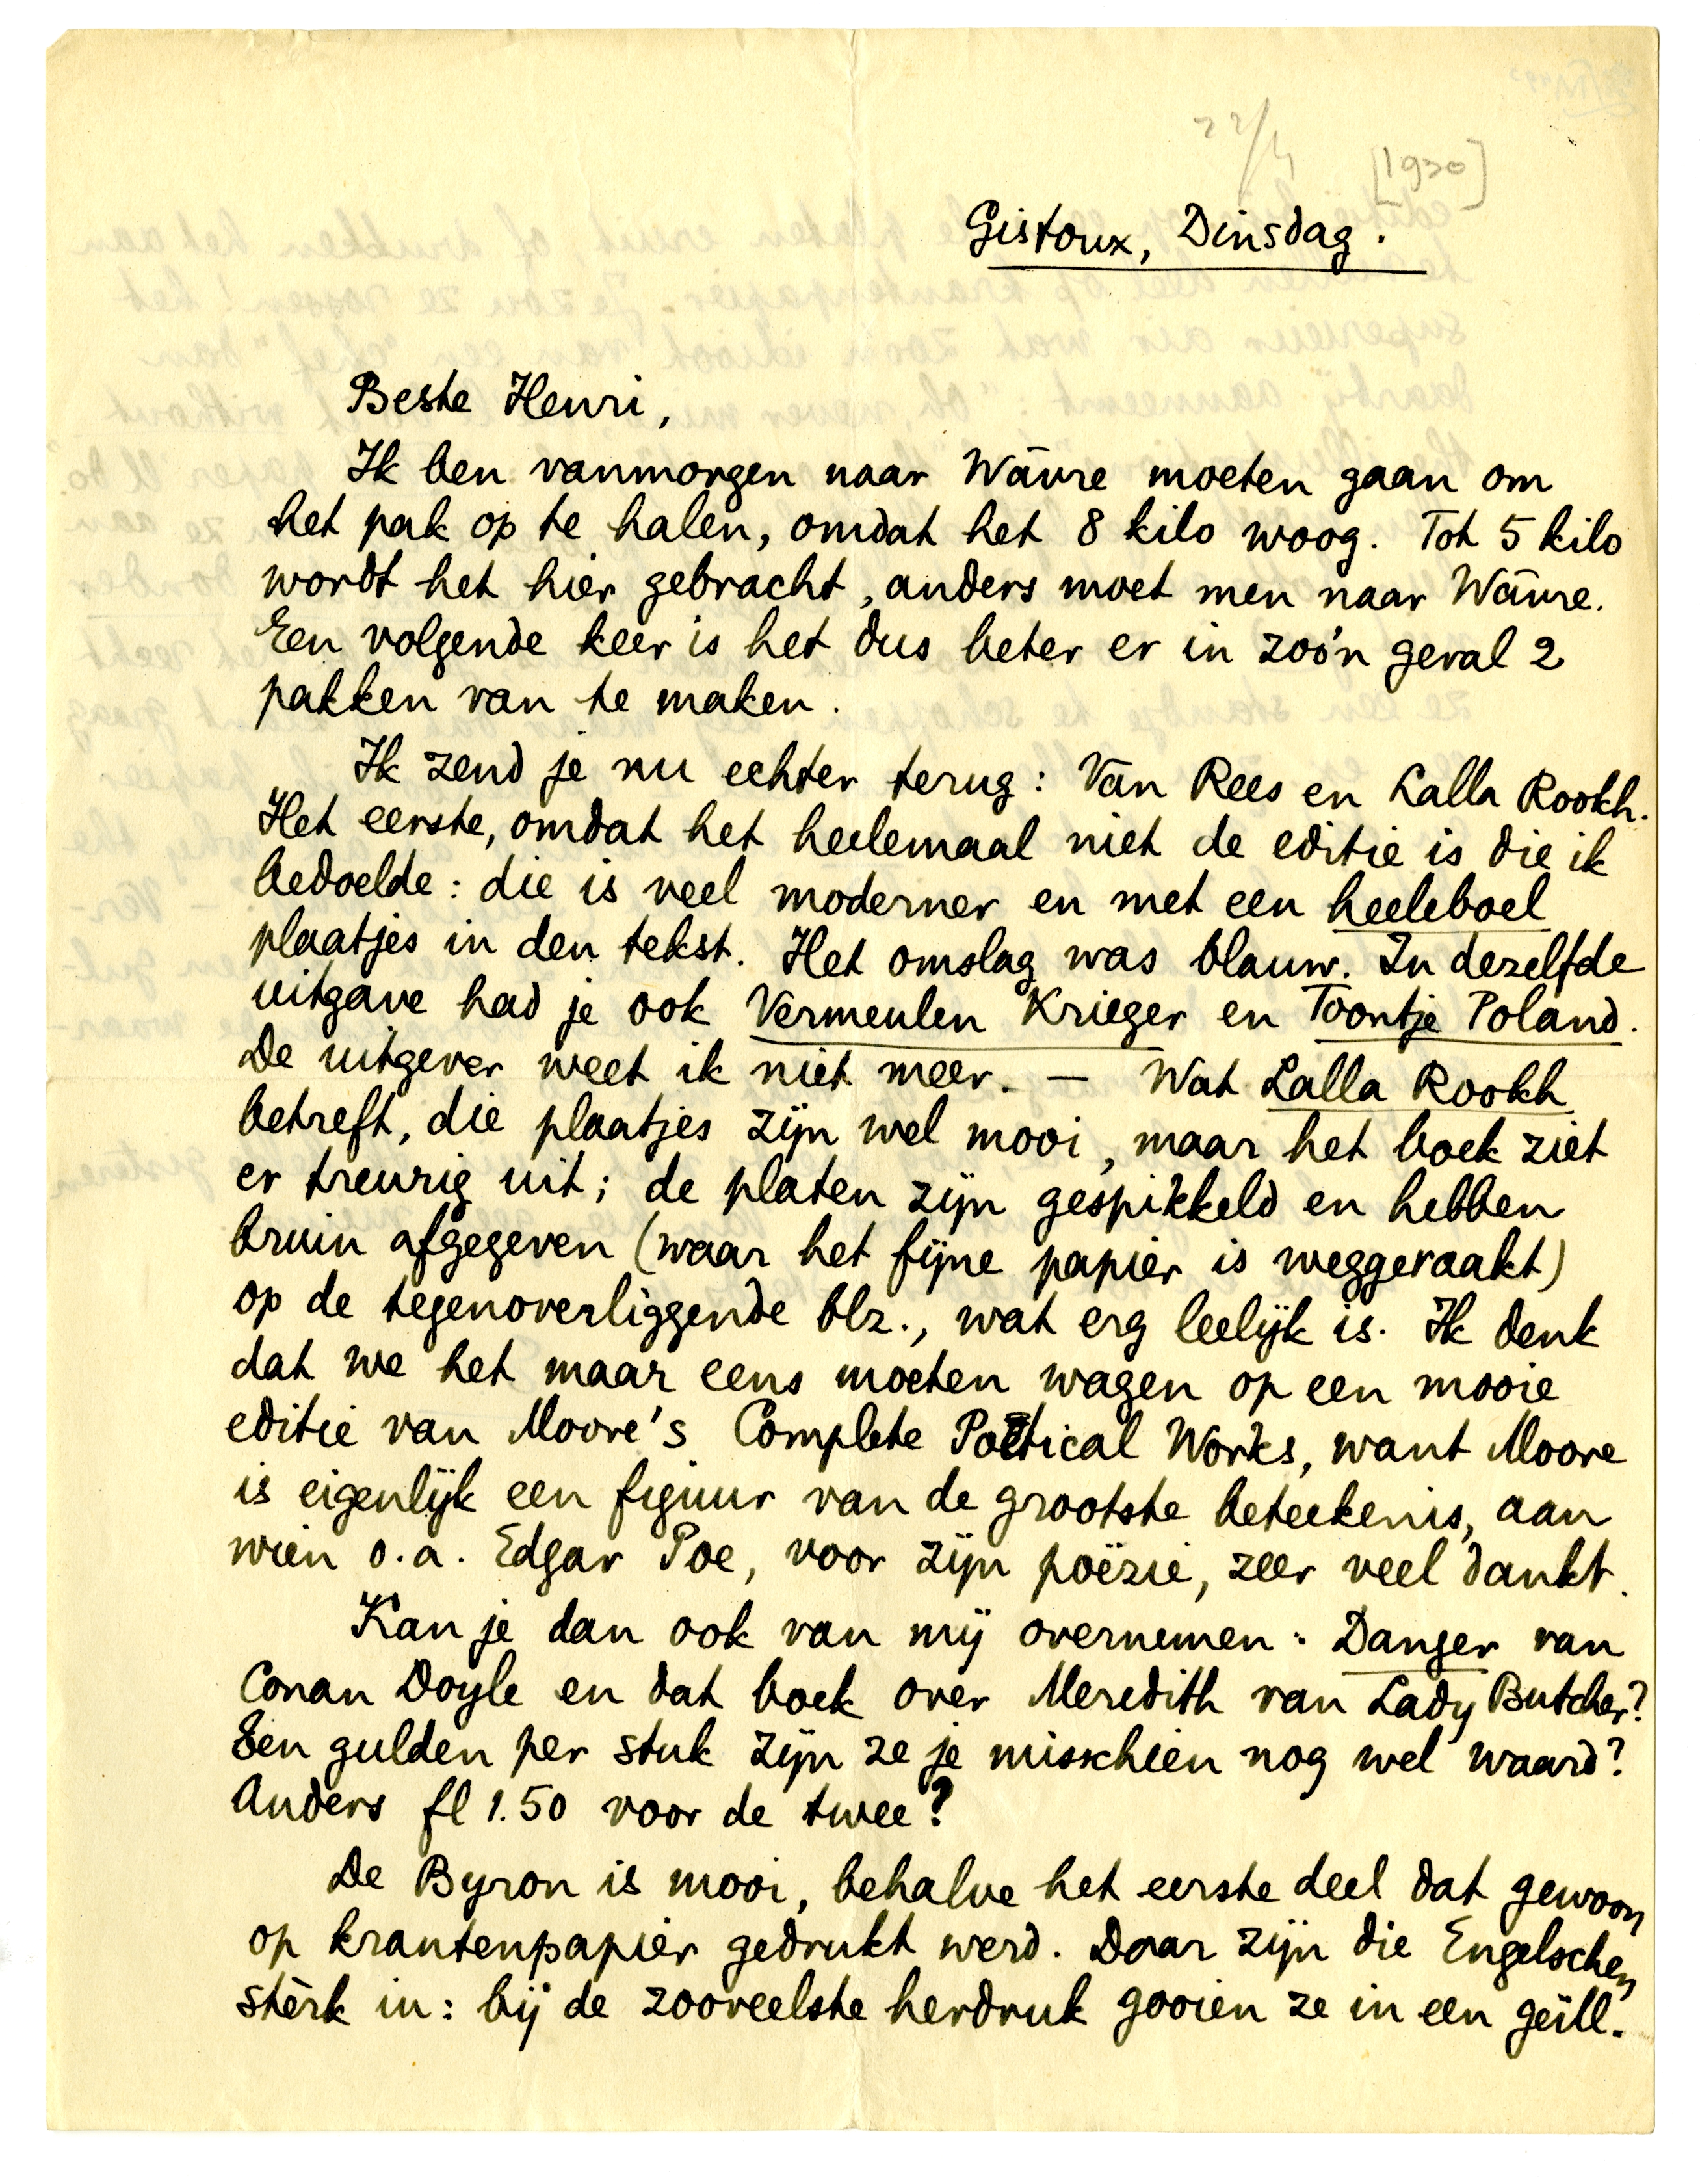 22/4 [1930]
Gistoux, Dinsdag.
Beste Henri,
Ik ben vanmorgen naar Wāvre moeten gaan om
het pak op te halen, omdat het 8 kilo woog. Tot 5 kilo
wordt het hier gebracht, anders moet men naar Wāvre.
Een volgende keer is het dus beter er in zoo'n geval 2
pakken van te maken.
Ik zend je nu echter terug: Van Rees en Lalla Rookh.
Het eerste, omdat het heelemaal niet de editie is die ik
bedoelde: die is veel moderner en met een heeleboel
plaatjes in den tekst. Het omslag was blauw. In dezelfde
uitgave had je ook Vermeulen Krieger en Toontje Poland.
De uitgever weet ik niet meer. — Wat Lalla Rookh
betreft, die plaatjes zijn wel mooi, maar het boek ziet
er treurig uit; de platen zijn gespikkeld en hebben
bruin afgegeven (waar het fijne papier is weggeraakt)
op de tegenoverliggende blz., wat erg leelijk is. Ik denk
dat we het maar eens moeten wagen op een mooie
editie van Moore's Complete Poetical Works, want Moore
is eigenlijk een figuur van de grootste beteekenis, aan
wien o.a. Edgar Poe, voor zijn poëzie, zeer veel dankt.
Kan je dan ook van mij overnemen: Danger van
Conan Doyle en dat boek over Meredith van Lady Butcher?
Een gulden per stuk zijn ze je misschien nog wel waard?
Anders fl 1.50 voor de twee?
De Byron is mooi, behalve het eerste deel dat gewoon
op krantenpapier gedrukt werd. Daar zijn die Engelschen
stèrk in: bij de zooveelste herdruk gooien ze in een geïll.